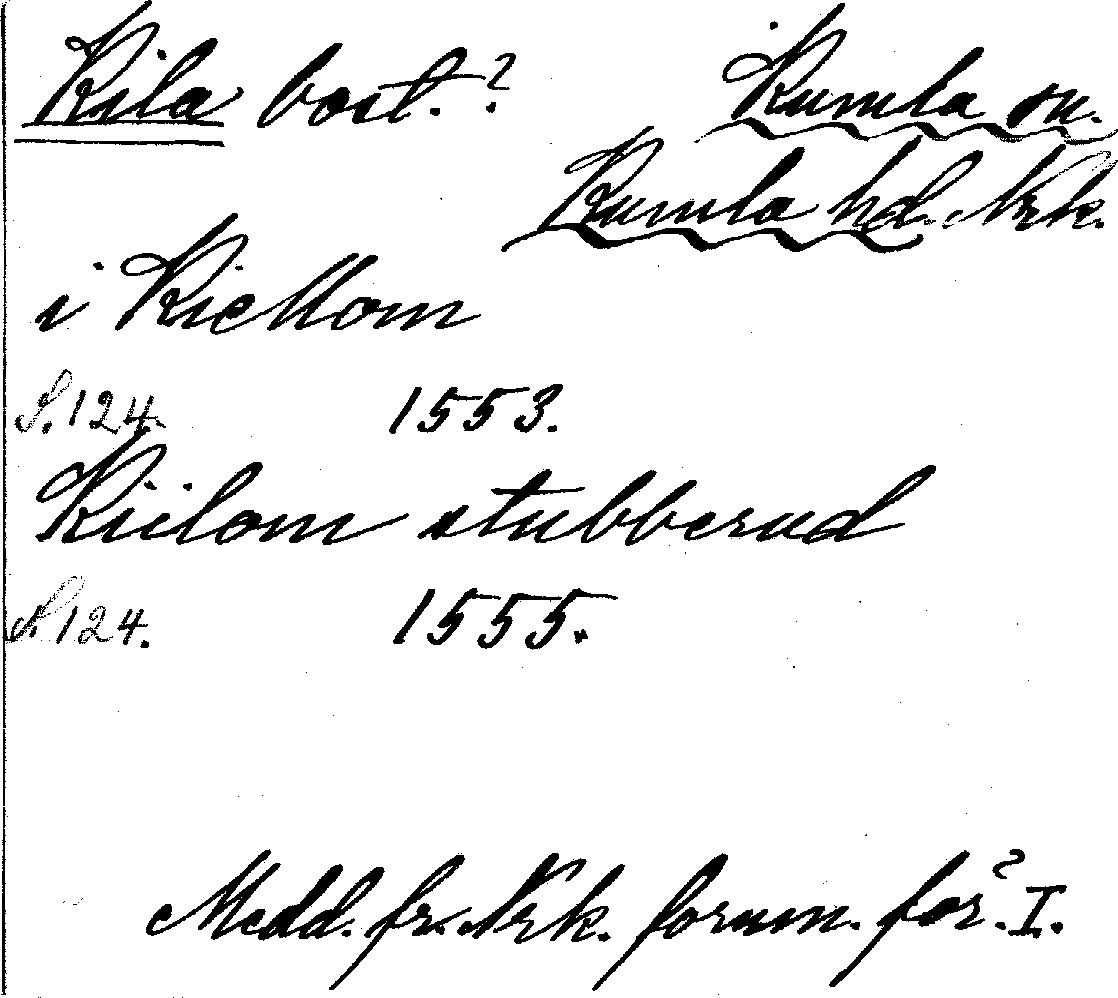 Kila bost.? Kumla sn.
Kumla hd. Nrk.
i Kiellom
S. 124. 1553.
Kiilom stubberud
S. 124. 1555.
Medd. fr. Nrk. fornm. för. I.